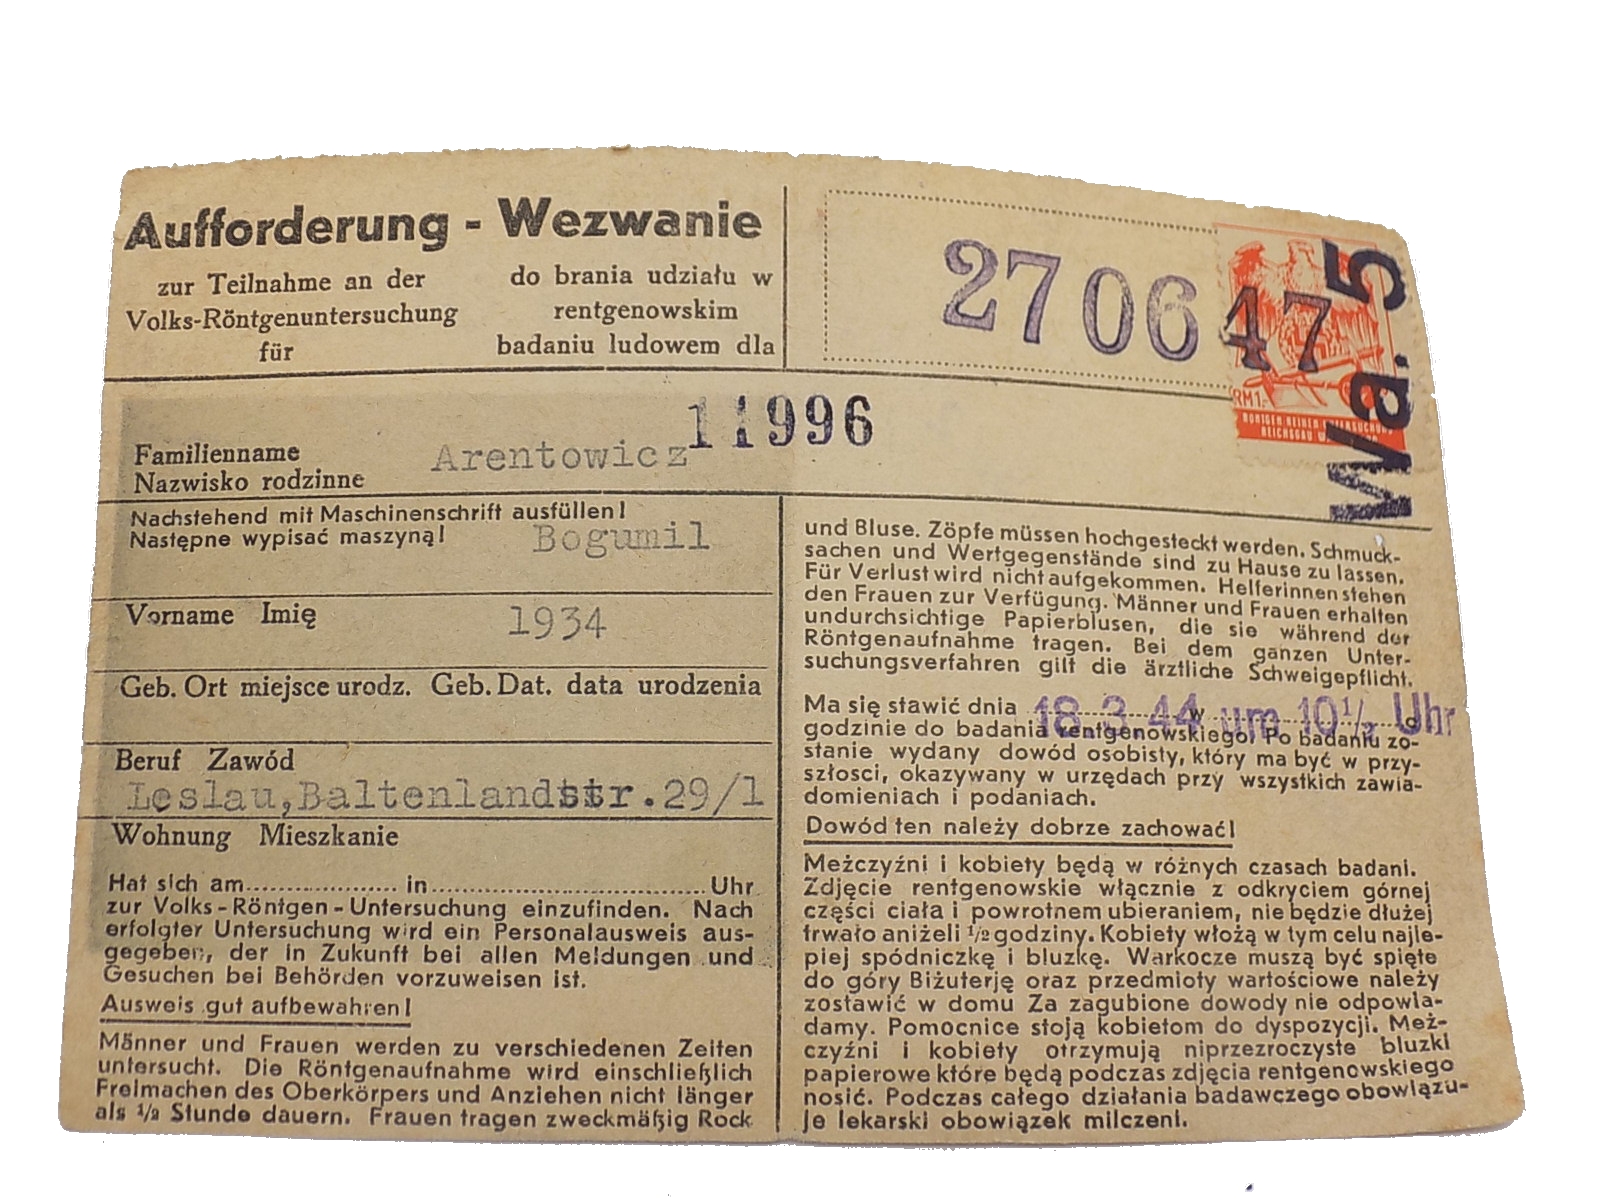 Aufforderung - Wezwanie
zur Teilnahme an der
Volks-Röntgenuntersuchung
für
do brania udziału w
rentgenowskim
badaniu ludowem dla
270647
Wa. 5
RM 1.-
REICHSGAU
11996
Familienname Arentowicz
Nazwisko rodzinne
Nachstehend mit Maschinenschrift ausfüllen!
Następne wypisać maszyną!
Bogumil
Vorname Imię
1934
Geb. Ort miejsce urodz. Geb. Dat. data urodzenia
Beruf Zawód
Leslau, Baltenlandstr. 29/1
Wohnung Mieszkanie
Hat sich am.................... in.................................... Uhr
zur Volks-Röntgen-Untersuchung einzufinden. Nach
erfolgter Untersuchung wird ein Personalausweis aus-
gegeben, der in Zukunft bei allen Meldungen und
Gesuchen bei Behörden vorzuweisen ist.
Ausweis gut aufbewahren!
Männer und Frauen werden zu verschiedenen Zeiten
untersucht. Die Röntgenaufnahme wird einschließlich
Freimachen des Oberkörpers und Anziehen nicht länger
als ½ Stunde dauern. Frauen tragen zweckmäßig Rock
und Bluse. Zöpfe müssen hochgesteckt werden. Schmuck-
sachen und Wertgegenstände sind zu Hause zu lassen.
Für Verlust wird nicht aufgekommen. Helferinnen stehen
den Frauen zur Verfügung. Männer und Frauen erhalten
undurchsichtige Papierblusen, die sie während der
Röntgenaufnahme tragen. Bei dem ganzen Unter-
suchungsverfahren gilt die ärztliche Schweigepflicht.
Ma się stawić dnia 18.3.44 w um 10½ Uhr o
godzinie do badania rentgenowskiego. Po badaniu zo-
stanie wydany dowód osobisty, który ma być w przy-
szłosci, okazywany w urzędach przy wszystkich zawia-
domieniach i podaniach.
Dowód ten należy dobrze zachować!
Meżczyźni i kobiety będą w różnych czasach badani.
Zdjęcie rentgenowskie włącznie z odkryciem górnej
części ciała i powrotnem ubieraniem, nie będzie dłużej
trwało aniżeli ½ godziny. Kobiety włożą w tym celu najle-
piej spódniczkę i bluzkę. Warkocze muszą być spięte
do góry Biżuterję oraz przedmioty wartościowe należy
zostawić w domu Za zagubione dowody nie odpowia-
damy. Pomocnice stoją kobietom do dyspozycji. Meż-
czyźni i kobiety otrzymują niprzezroczyste bluzki
papierowe które będą podczas zdjęcia rentgenowskiego
nosić. Podczas całego działania badawczego obowiązu-
je lekarski obowiązek milczeni.